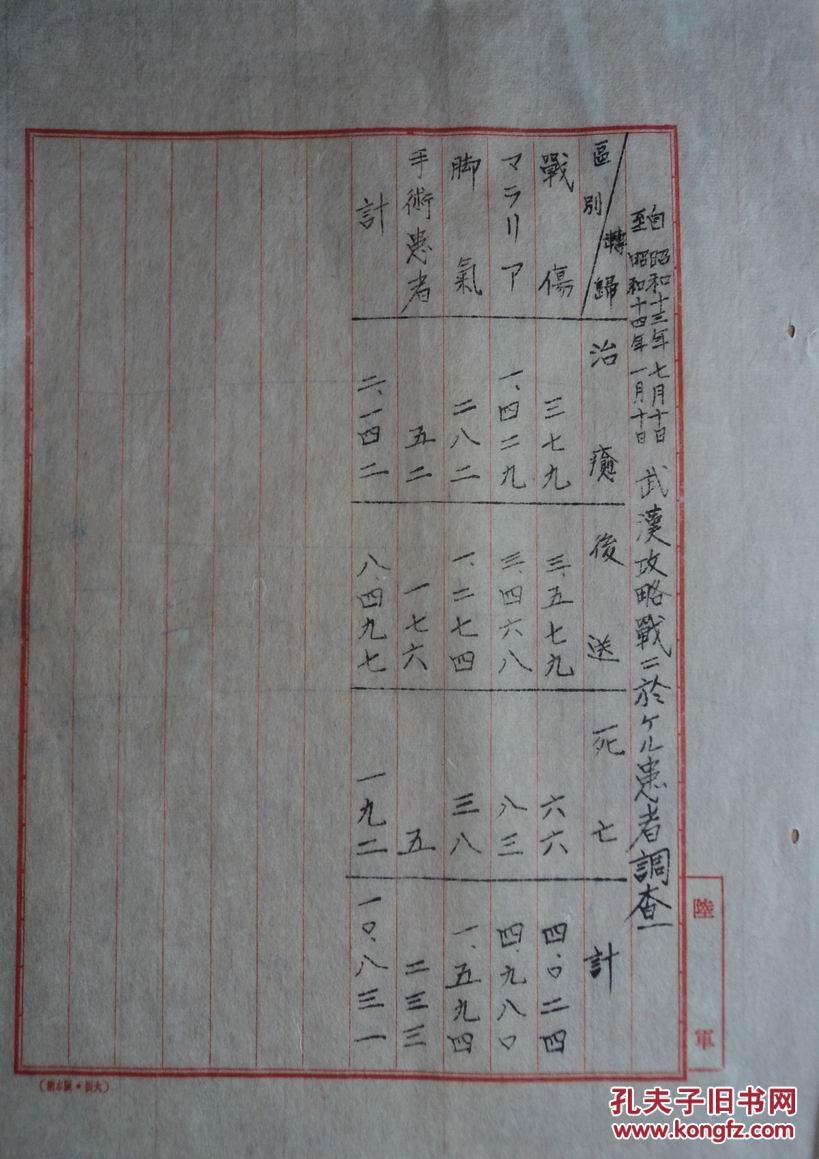 自昭和十三年七月十日
至昭和十四年一月十日
武漢攻略戰ニ於ケル患者調查
區別 轉歸 治癒 後送 死亡 計
戰傷 三七九 三、五七九 六六 四、〇二四
マラリア 一、四二九 三、四六八 八三 四、九八〇
脚氣 二八二 一、二七四 三八 一、五九四
手術患者 五二 一七六 五 二三三
計 二、一四二 八、四九七 一九二 一〇、八三一
陸軍
孔夫子旧书网
www.kongfz.com